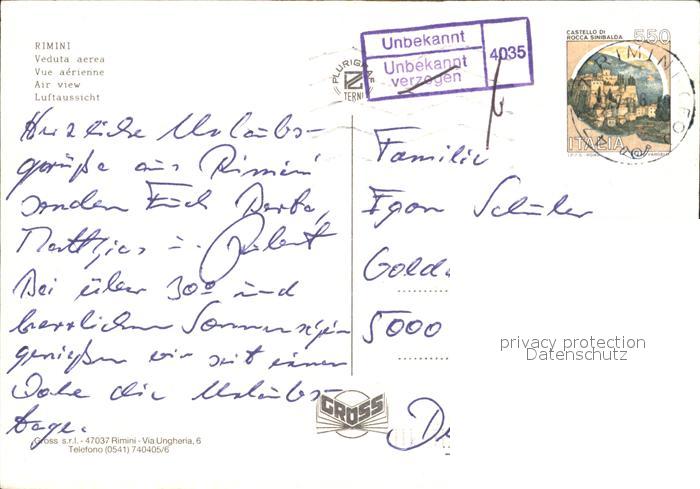 RIMINI
Veduta aerea
Vue aérienne
Air view
Luftaussicht
PLURIGRAF
TERNI
Unbekannt
Unbekannt
verzogen
4035
CASTELLO DI
ROCCA SINIBALDA
550
ITALIA
RIMINI
Herzliche Urlaubs-
grüße aus Rimini
senden Euch
Matthias u.
Bei über 30º und
herrlichem Sonnenschein
genießen wir seit einer
Woche die Urlaubs-
tage.
Familie
Egon Schüler
Gold
5000
privacy protection
Datenschutz
GROSS
Gross s.r.l. - 47037 Rimini - Via Ungheria, 6
Telefono (0541) 740405/6